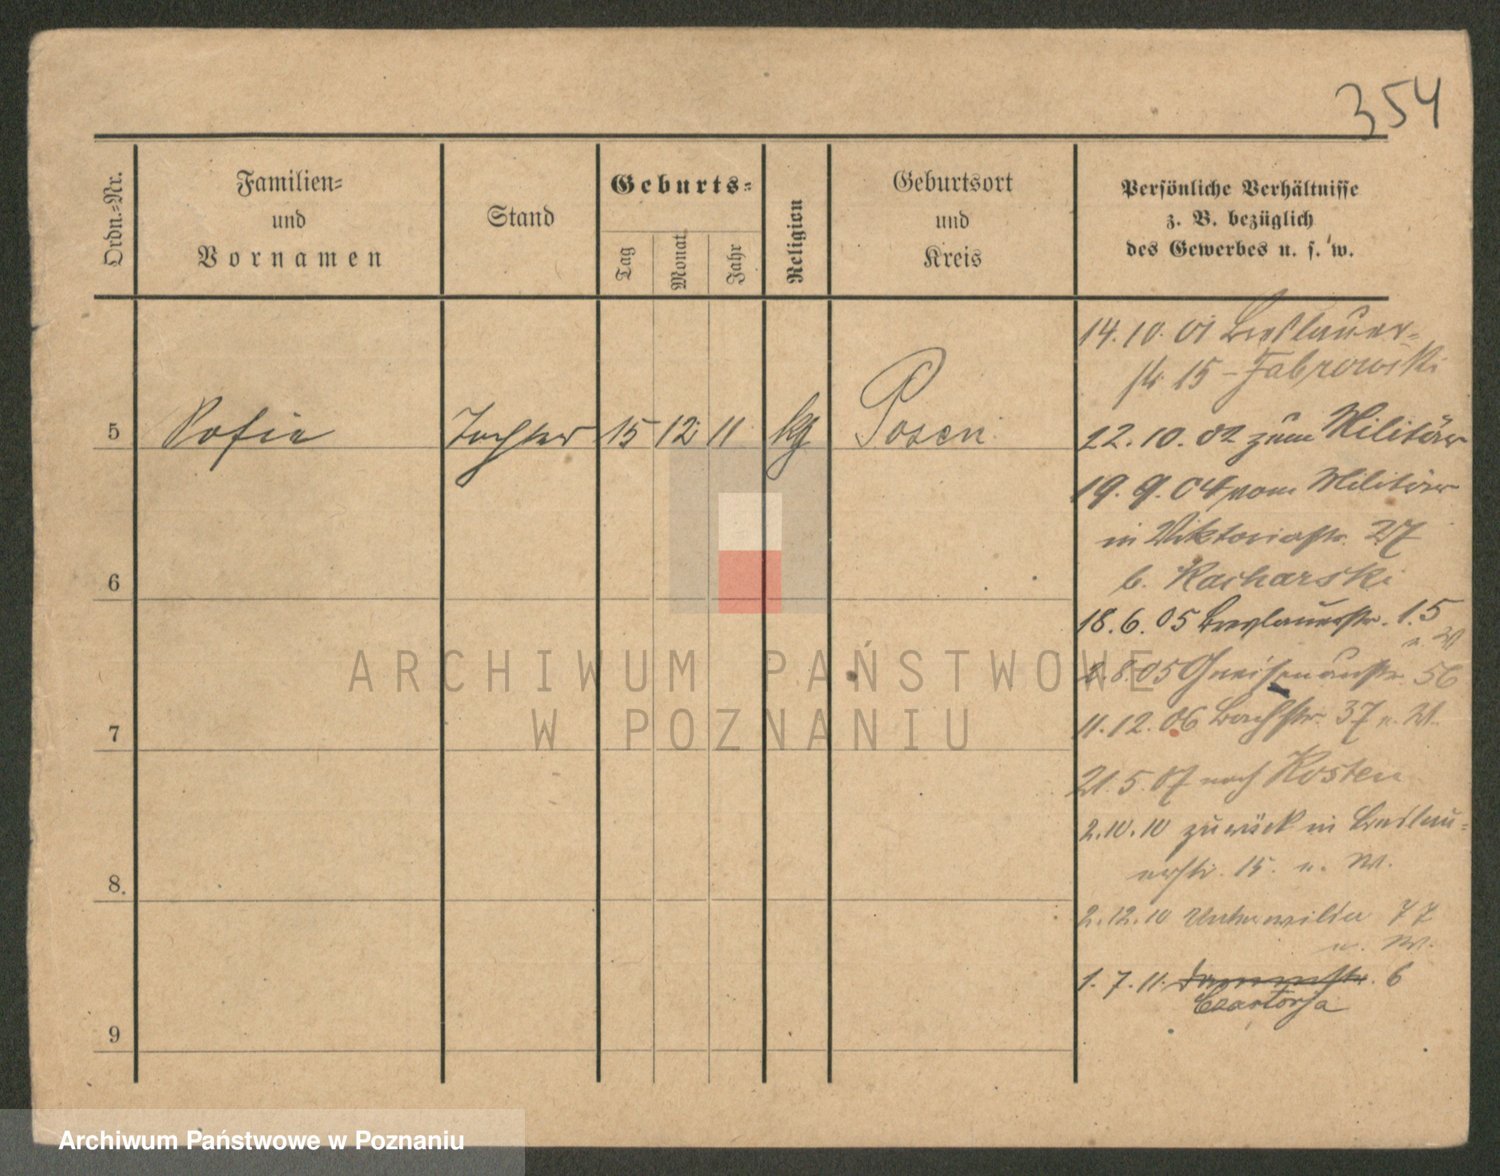 354
Ordn.-Nr.
Familien-
und
Vornamen
Stand
Geburts-
Tag
Monat
Jahr
Religion
Geburtsort
und
Kreis
Persönliche Verhältnisse
z. B. bezüglich
des Gewerbes u. s. w.
14. 10. 01 Breslauer-
str 15 - Fabrowski
5 Sofie Tochter 15 12 11 kg Posen
22. 10. 02 zum Militär
19. 9. 04 vom Militär
in Viktoriastr. 27
b. Kacharski
6
18. 6. 05 Breslauerstr. 15
u. W
2. 8. 05 Gneisenaustr. 56
11. 12. 06 Bachstr. 37 u. W.
7
21. 5. 07 nach Kosten
2. 10. 10 zurück in Breslau-
erstr. 15. u. W.
8.
2. 12. 10 Unterwilda 77
u. W.
1. 7. 11. 6
Czartorja
9
ARCHIWUM PAŃSTWOWE
W POZNANIU
Archiwum Państwowe w Poznaniu